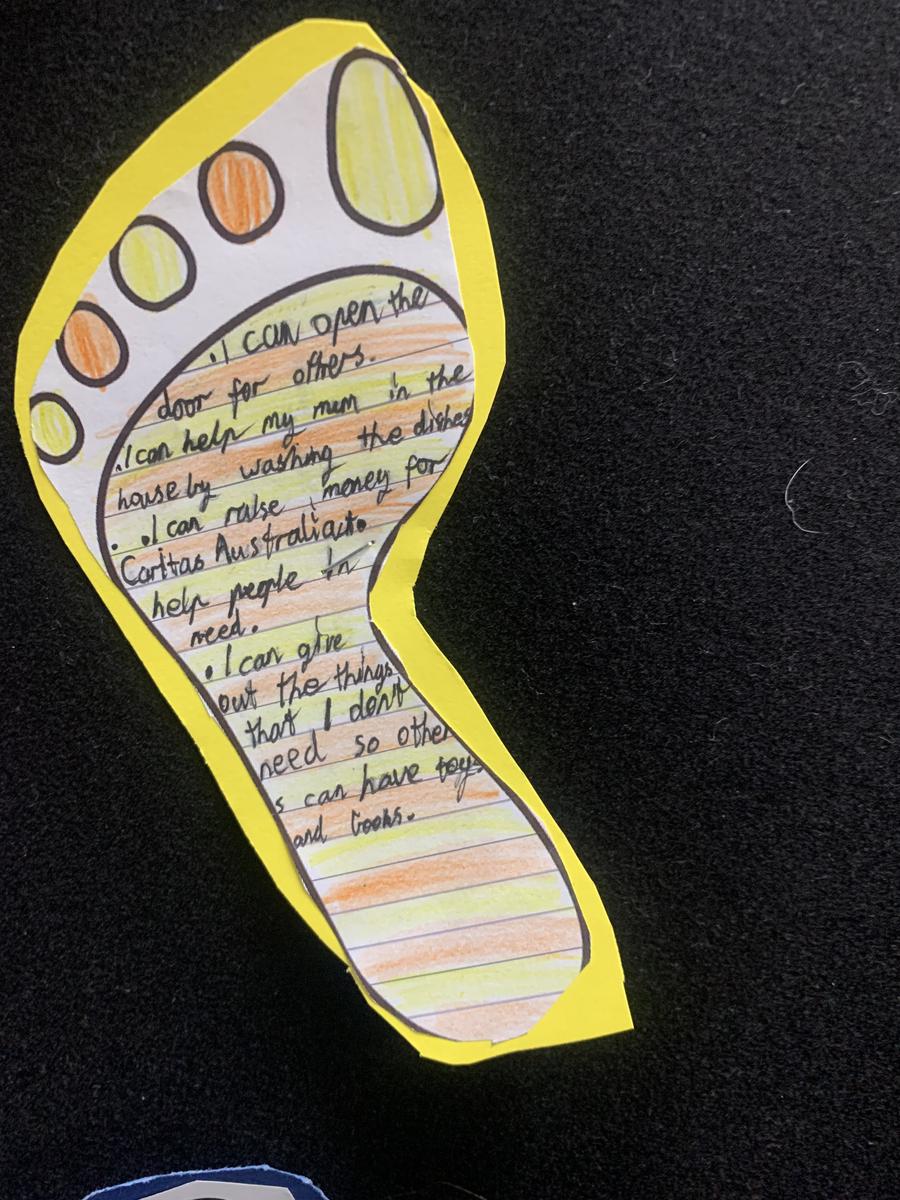 .I can open the
door for others.
.I can help my mum in the
house by washing the dishes
. .I can raise money for
Caritas Australia to.
help people in
need.
.I can give
out the things
that I don't
need so other
s can have toys
and books.